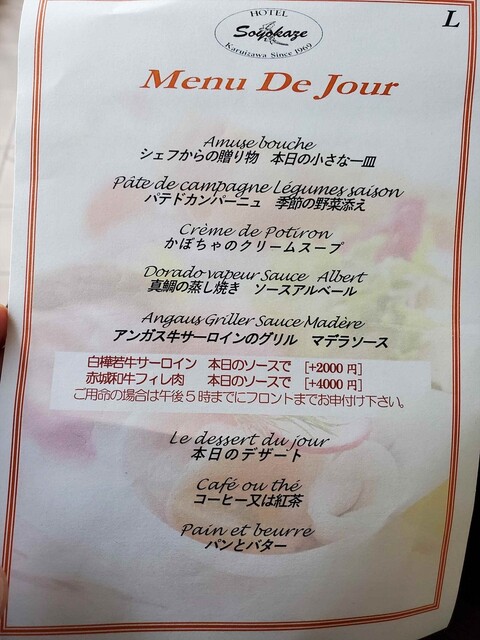 L
HOTEL
Soyokaze
Karuizawa Since 1969
Menu De Jour
Amuse bouche
シェフからの贈り物 本日の小さな一皿
Pâte de campagne Légumes saison
パテドカンパーニュ 季節の野菜添え
Crème de Potiron
かぼちゃのクリームスープ
Dorado vapeur Sauce Albert
真鯛の蒸し焼き ソースアルベール
Angaus Griller Sauce Madère
アンガス牛サーロインのグリル マデラソース
白樺若牛サーロイン 本日のソースで [+2000 円]
赤城和牛フィレ肉 本日のソースで [+4000 円]
ご用命の場合は午後5時までにフロントまでお申付け下さい。
Le dessert du jour
本日のデザート
Café ou thé
コーヒー又は紅茶
Pain et beurre
パンとバター